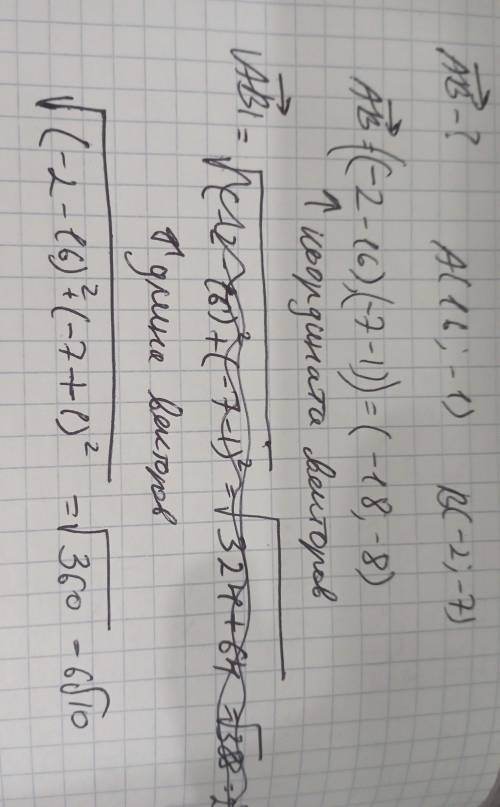 AB - ? A(16; -1) B(-2; -7)
AB = ((-2-16), (-7-1)) = (-18; -8)
↑ координата векторов
|AB| = √(-2-16)² + (-7-1)² = √324+64 = √38
↑ длина векторов
√(-2-16)² + (-7+1)² = √360 - 6√10